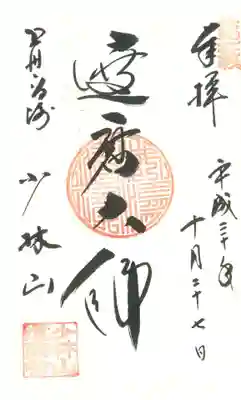 奉拝
平成三十年
十月二十七日
達磨大師
少林山